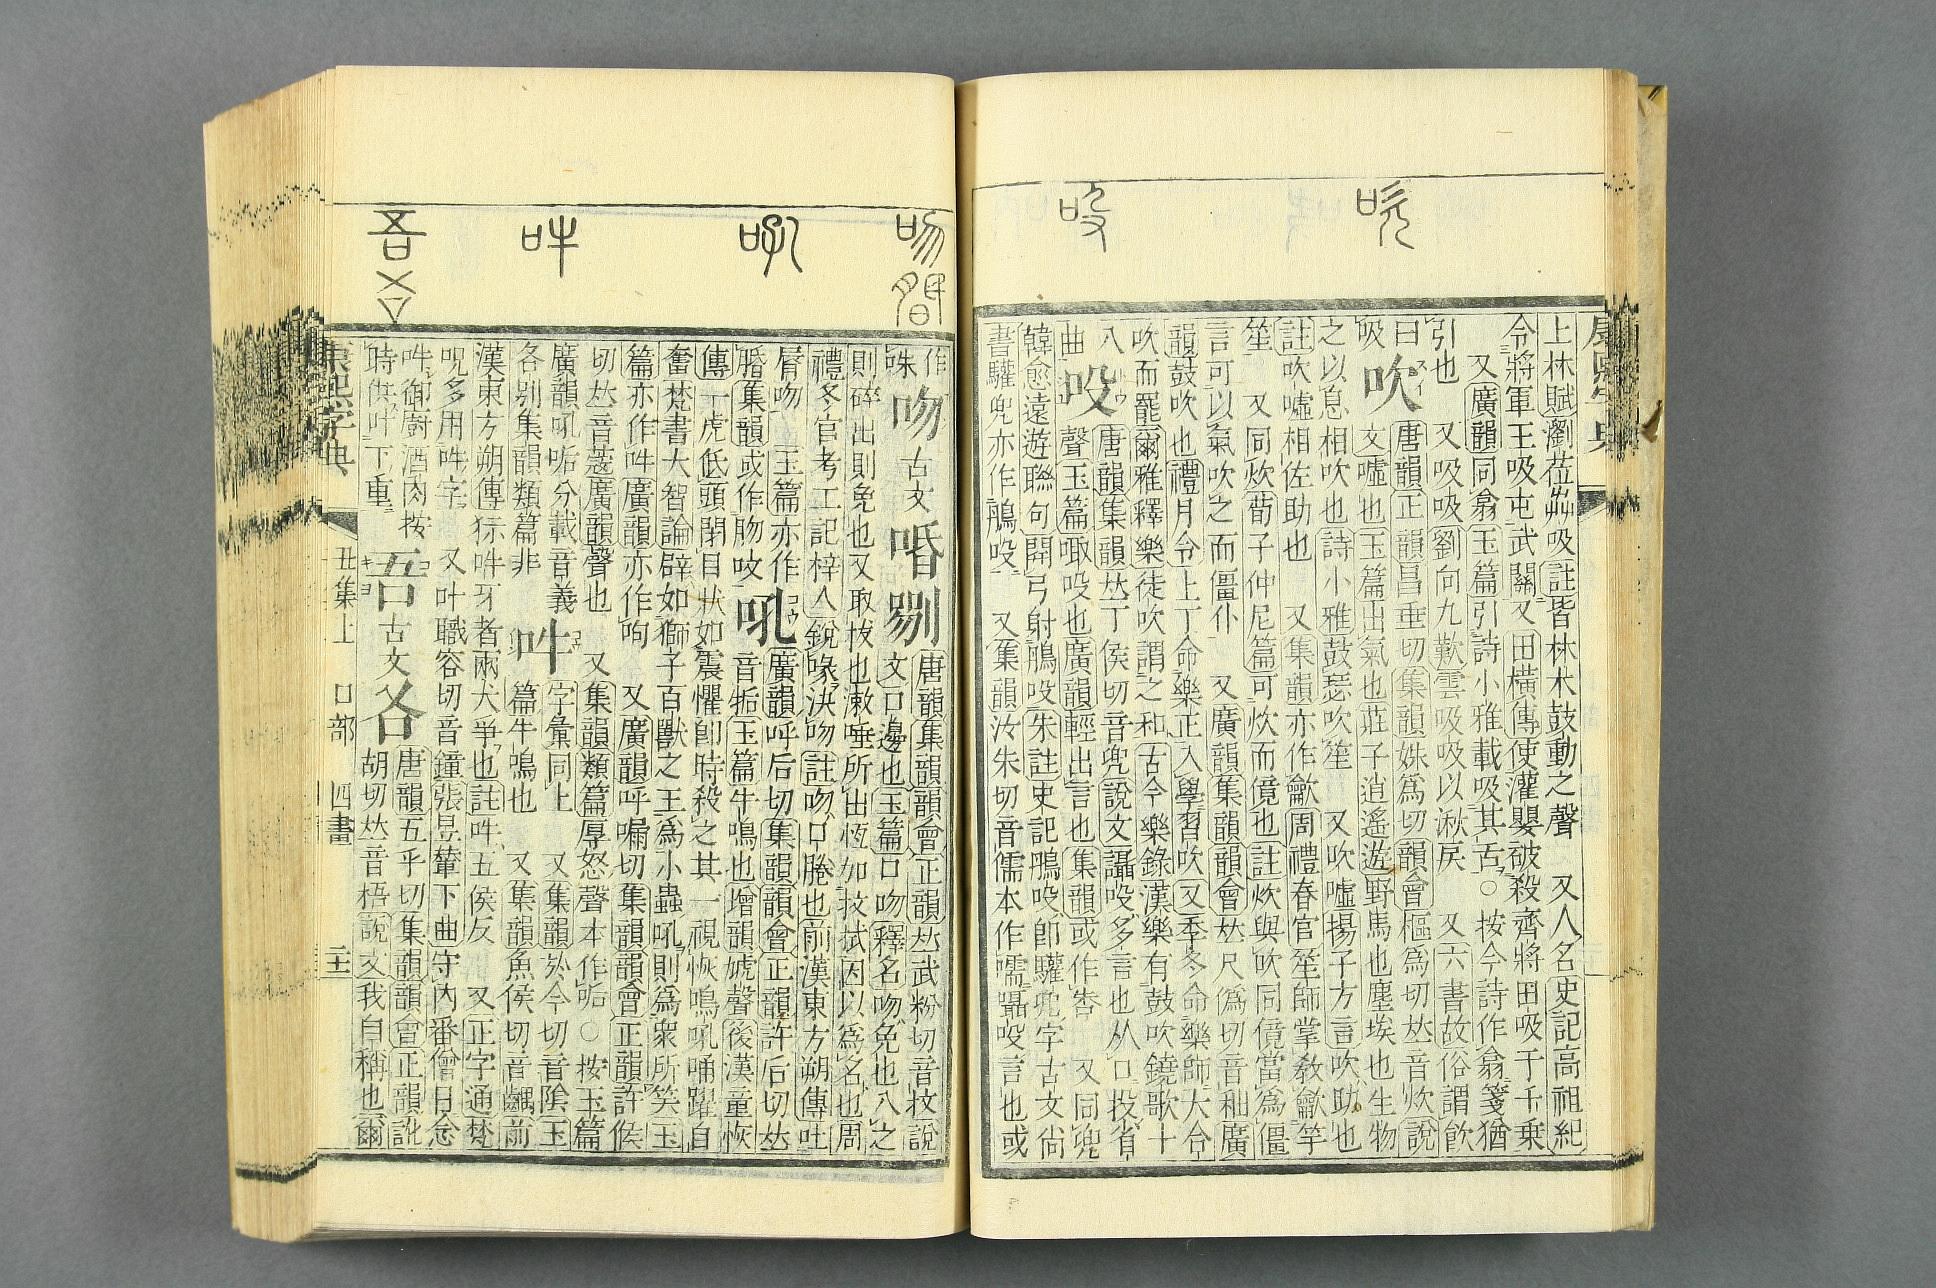 吹
吺
康熙字典
上林賦瀏莅芔吸註皆林木鼓動之聲 又人名史記高祖紀
令將軍王吸屯武關又田橫傳使灌嬰破殺齊將田吸于千乘
又廣韻同翕玉篇引詩小雅載吸其舌○按今詩作翕箋猶
引也 又吸吸劉向九歎雲吸吸以湫戾 又六書故俗謂飮
曰吸
吹 スイ 唐韻正韻昌垂切集韻姝爲切韻會樞爲切𠀤音炊說
文噓也玉篇出氣也莊子逍遙遊野馬也塵埃也生物
之以息相吹也詩小雅鼓瑟吹笙 又吹噓揚子方言吹助也
註吹噓相佐助也 又集韻亦作龡周禮春官笙師掌敎龡竽
笙 又同炊荀子仲尼篇可炊而傹也註炊與吹同傹當爲僵
言可以氣吹之而僵仆 又廣韻集韻韻會𠀤尺僞切音秹廣
韻鼓吹也禮月令上丁命樂正入學習吹又季冬命樂師大合
吹而罷爾雅釋樂徒吹謂之和古今樂錄漢樂有鼓吹鐃歌十
八曲
吺 唐韻集韻𠀤丁侯切音兜說文讘吺多言也从口投省
聲玉篇㖩吺也廣韻輕出言也集韻或作呇 又同兜
韓愈遠遊聯句開弓射鴅吺朱註史記鴅吺卽驩兜字古文尙
書驩兜亦作鴅吺 又集韻汝朱切音儒本作嚅囁吺言也或
吻
吼
吽
吾
作咮
吻 古文 㖧 唐韻集韻韻會正韻𠀤武粉切音抆說
文口邊也玉篇口吻釋名吻免也入之
則碎出則免也又取抆也漱唾所出恆加抆拭因以爲名也周
禮冬官考工記梓人銳喙決吻註吻口腃也前漢東方朔傳吐
脣吻 玉篇亦作㖧集韻或作肳
吼 コウ 廣韻呼后切集韻韻會正韻許后切𠀤
音垢玉篇牛鳴也增韻虓聲後漢童恢
傳一虎低頭閉目狀如震懼卽時殺之其一視恢鳴吼踴躍自
奮梵書大智論辟如獅子百獸之王爲小蟲吼則爲衆所笑玉
篇亦作吽廣韻亦作呴 又廣韻呼漏切集韻韻會正韻許候
切𠀤音蔻廣韻聲也 又集韻類篇厚怒聲本作㖃○按玉篇
廣韻吼㖃分載音義各別集韻類篇非
吽 字彙同上 又集韻於今切音陰玉
篇牛鳴也 又集韻魚侯切音齵前
漢東方朔傳狋吽牙者兩犬爭也註吽五侯反 又正字通梵
呪多用吽字 又叶職容切音鐘張昱輦下曲守內番僧日念
吽御廚酒肉按時供叶下重
吾 ゴ 古文 唐韻五乎切集韻韻會正韻訛
胡切𠀤音梧說文我自稱也爾
康熙字典 丑集上 口部 四畫